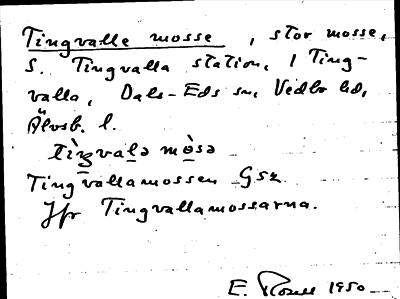 Tingvalle mosse, stor mosse,
S. Tingvalla station, i Ting-
valla, Dals-Eds sn, Vedbo hd,
Älvsb. l.
tìŋvalə mòsə
Tingvallamossen Gsz
Jfr Tingvallamossarna.
E. 1950